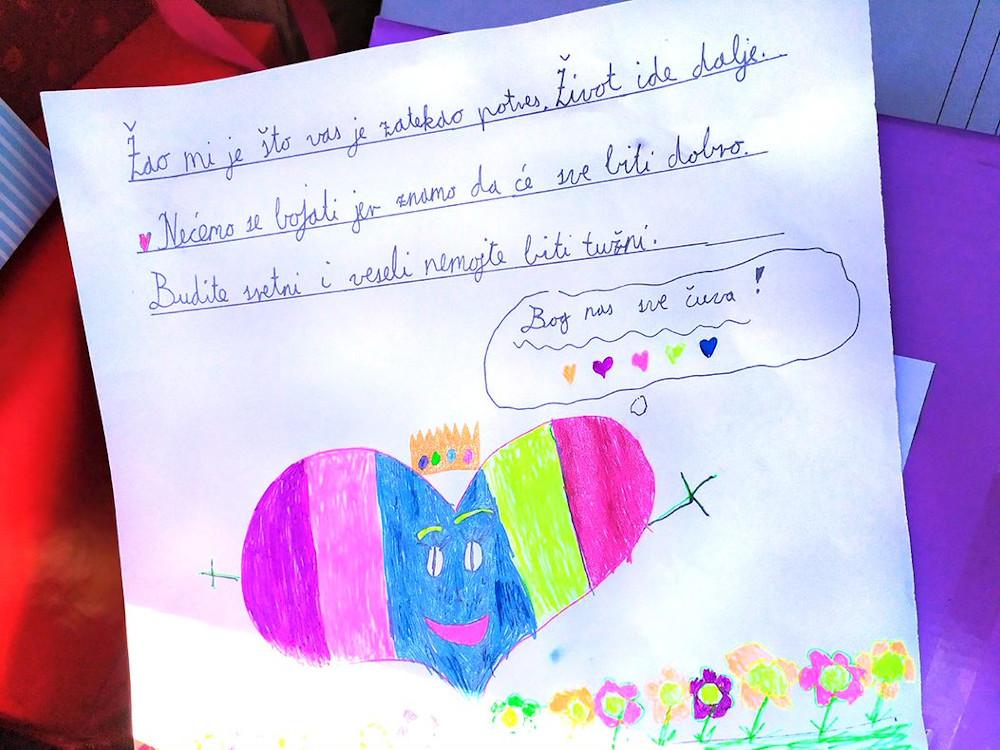 Žao mi je što vas je zatekao potres. Život ide dalje.
Nećemo se bojati jer znamo da će sve biti dobro.
Budite sretni i veseli nemojte biti tužni.
Bog nas sve čuva!